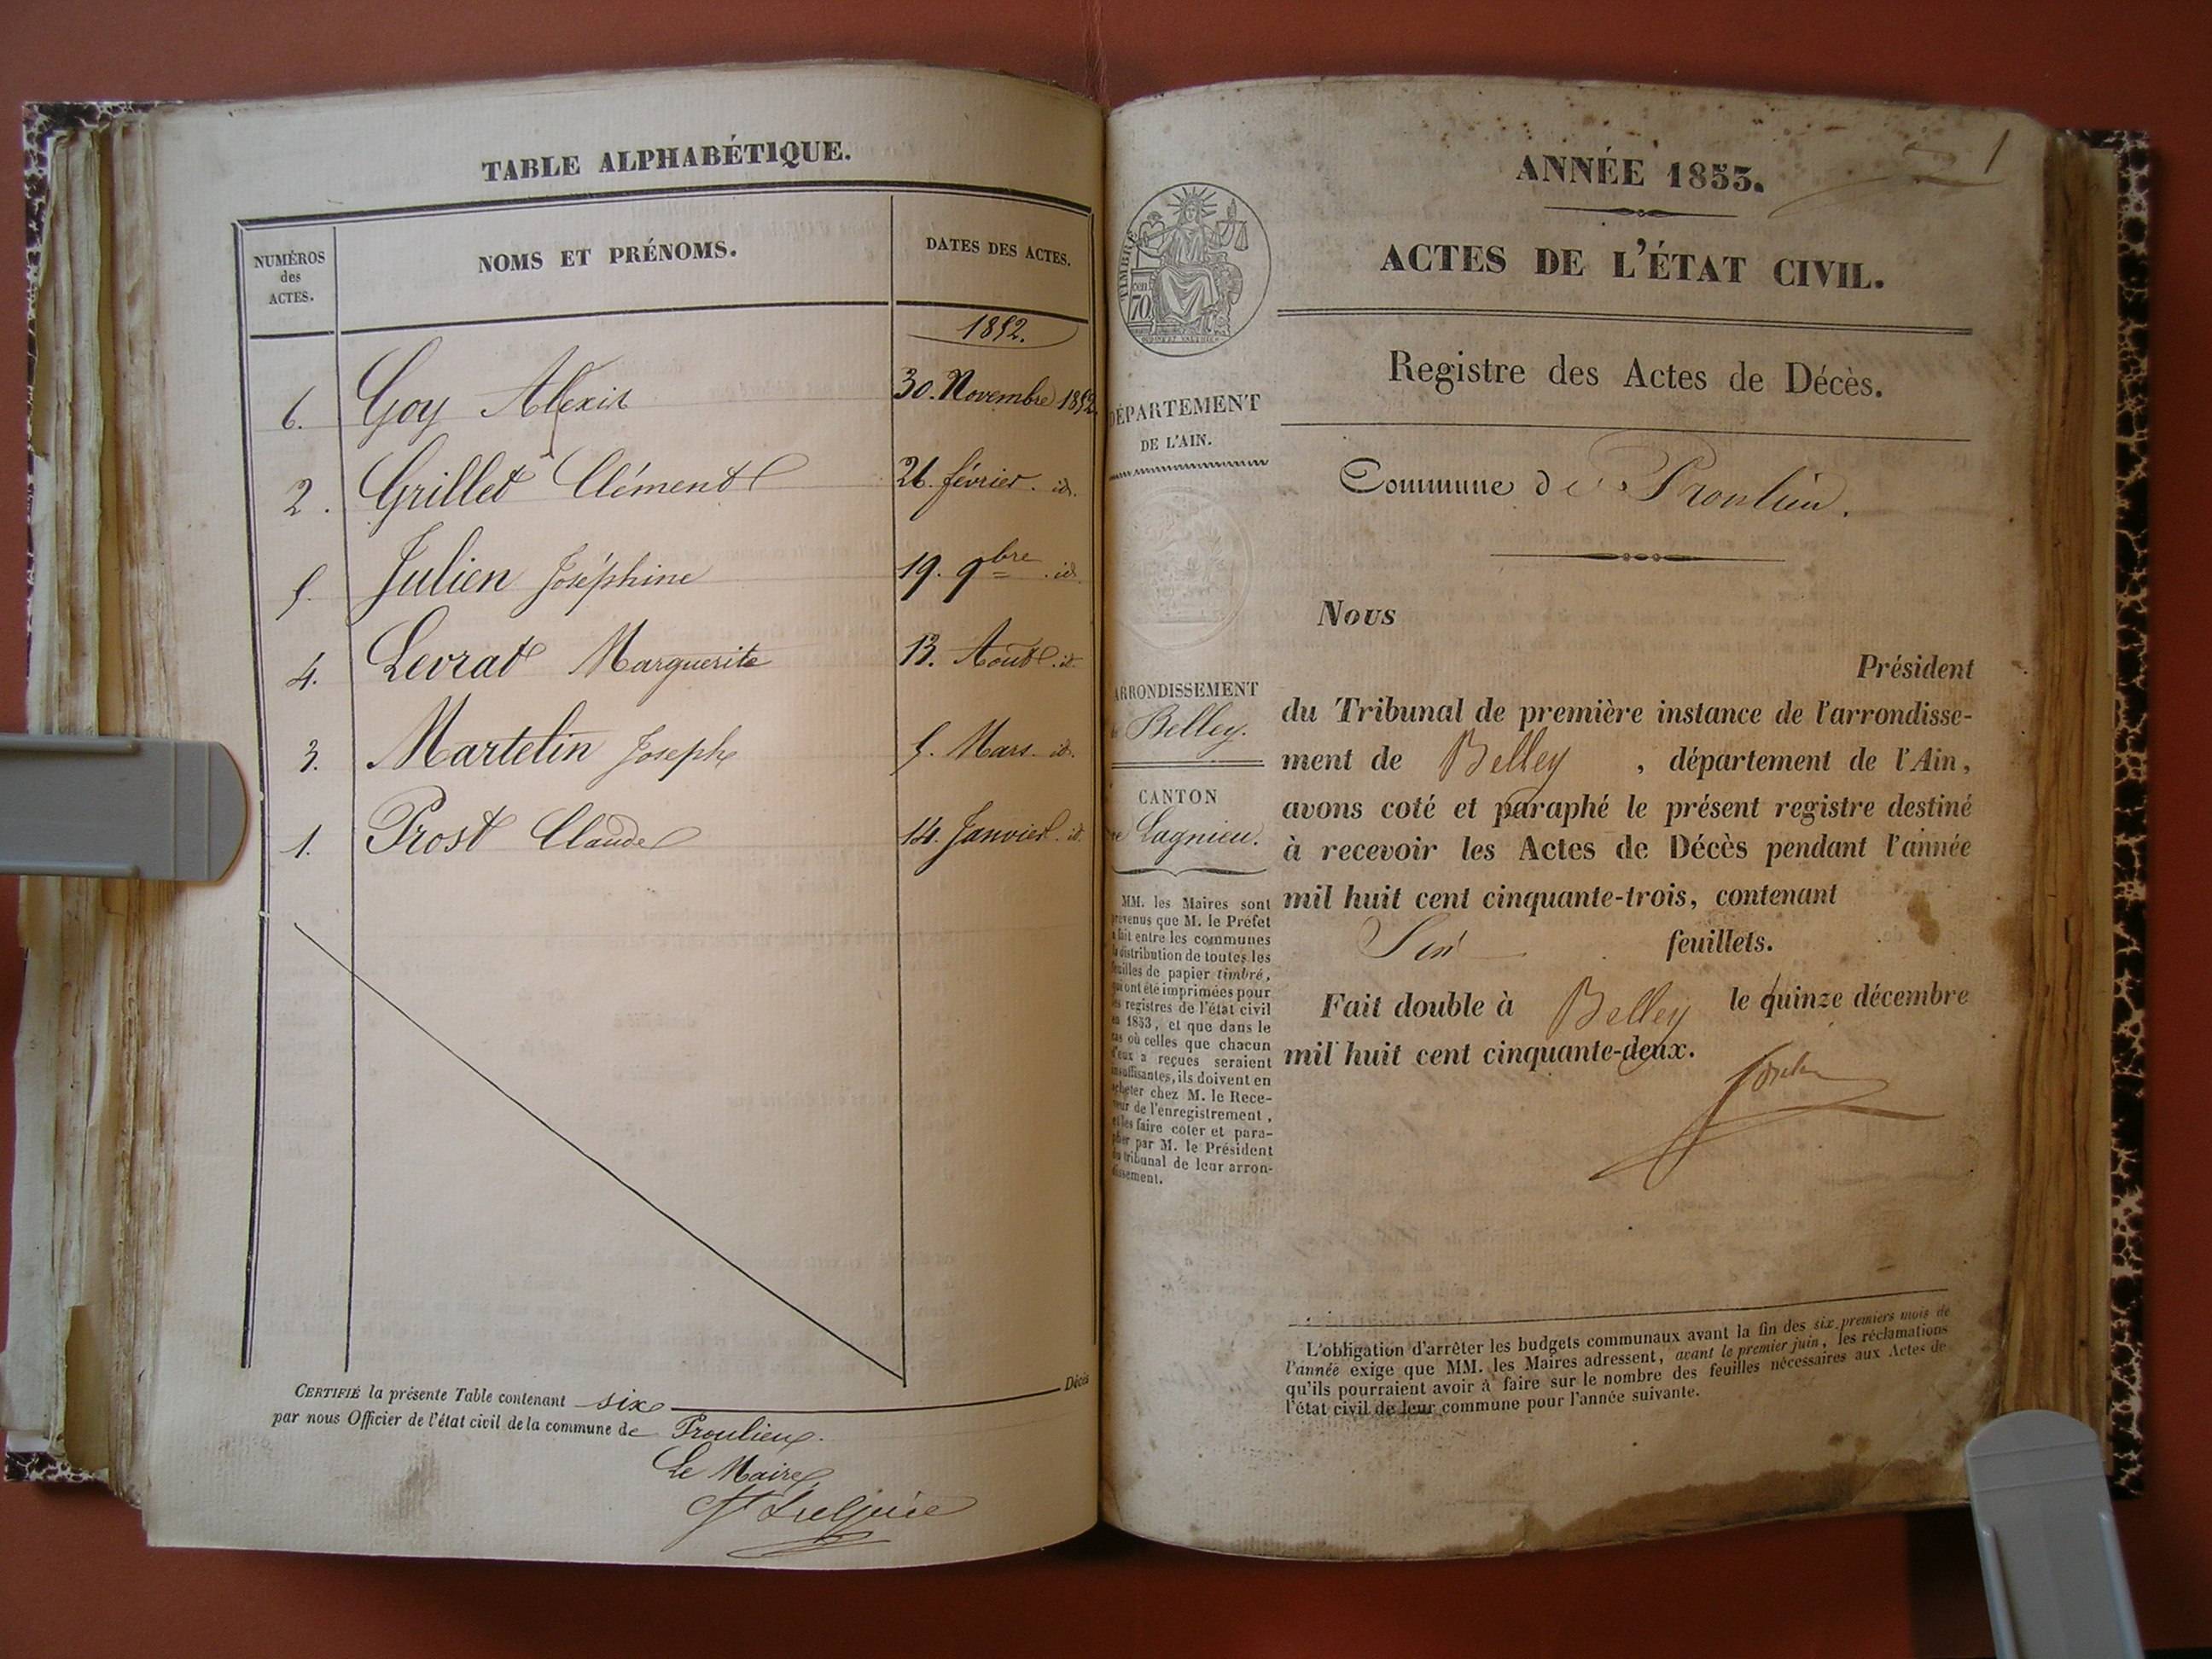 TABLE ALPHABÉTIQUE.
NUMÉROS
des
ACTES.
NOMS ET PRÉNOMS.
DATES DES ACTES.
1852.
6. Goy Alexis 30. Novembre 1852.
2. Grillet Clément 26. février. id.
5. Julien Joséphine 19. 9bre. id.
4. Levrat Marguerite 13. Août. id.
3. Martelin Joseph 5. Mars. id.
1. Prost Claude 14. Janvier. id.
CERTIFIÉ la présente Table contenant six Décès
par nous Officier de l'état civil de la commune de Proulieu.
Le Maire,
1
ANNÉE 1853.
ACTES DE L'ÉTAT CIVIL.
Registre des Actes de Décès.
Commune de Proulieu.
TIMBRE
70
DÉPARTEMENT
DE L'AIN.
ARRONDISSEMENT
de Belley.
CANTON
de Lagnieu.
MM. les Maires sont
prévenus que M. le Préfet
a fait entre les communes
la distribution de toutes les
feuilles de papier timbré,
qui ont été imprimées pour
les registres de l'état civil
en 1853, et que dans le
cas où celles que chacun
d'eux a reçues seraient
insuffisantes, ils doivent en
acheter chez M. le Rece-
veur de l'enregistrement,
et les faire coter et para-
pher par M. le Président
du tribunal de leur arron-
dissement.
Nous
Président
du Tribunal de première instance de l'arrondisse-
ment de Belley, département de l'Ain,
avons coté et paraphé le présent registre destiné
à recevoir les Actes de Décès pendant l'année
mil huit cent cinquante-trois, contenant
Six feuillets.
Fait double à Belley le quinze décembre
mil huit cent cinquante-deux.
L'obligation d'arrêter les budgets communaux avant la fin des six premiers mois de
l'année exige que MM. les Maires adressent, avant le premier juin, les réclamations
qu'ils pourraient avoir à faire sur le nombre des feuilles nécessaires aux Actes de
l'état civil de leur commune pour l'année suivante.